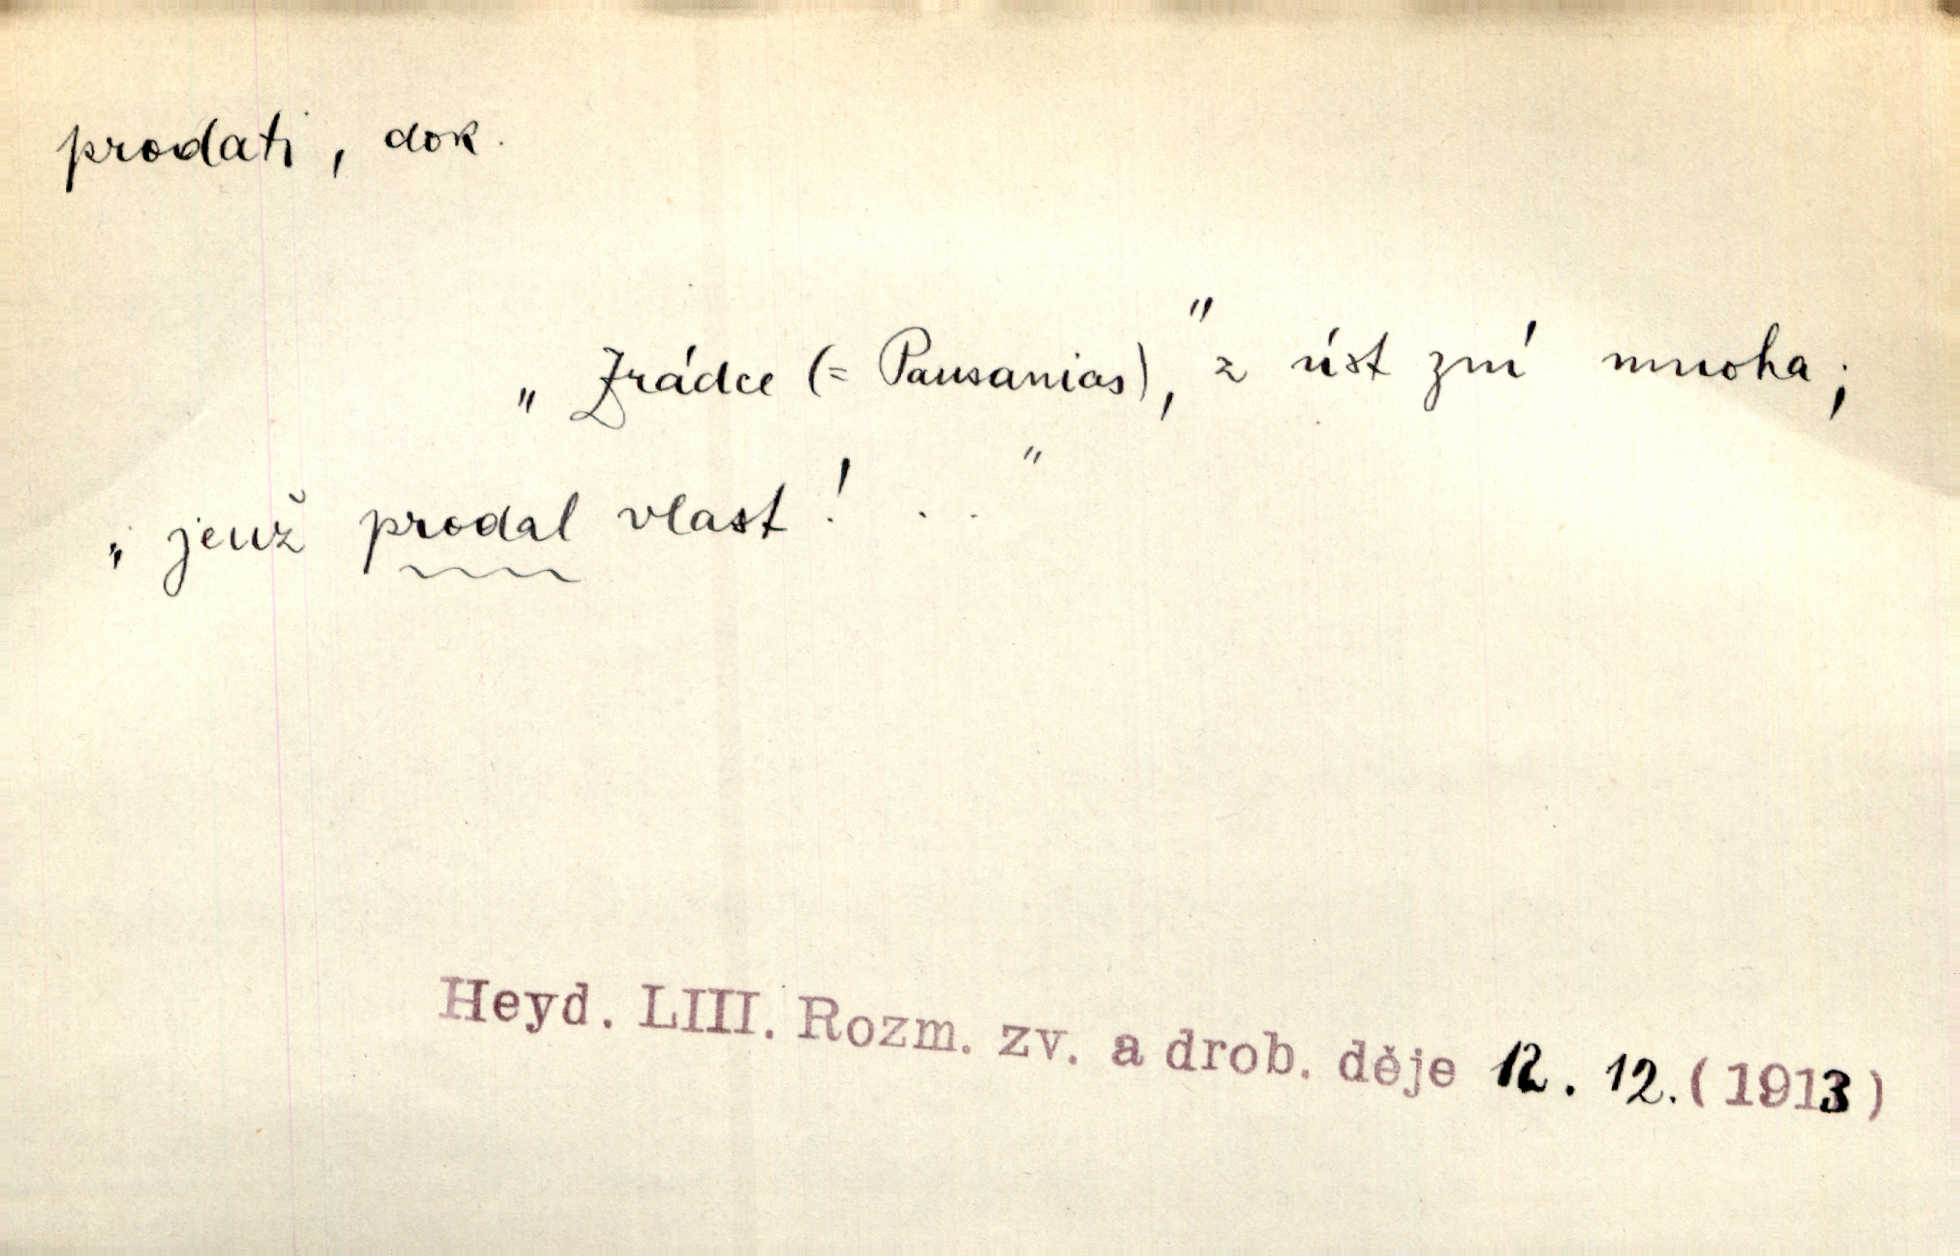 prodati, dok.
„Zrádce (= Pausanias),“ z úst zní mnoha;
„jenž prodal vlast! . . “
Heyd. LIII. Rozm. zv. a drob. děje 12. 12. (1913)